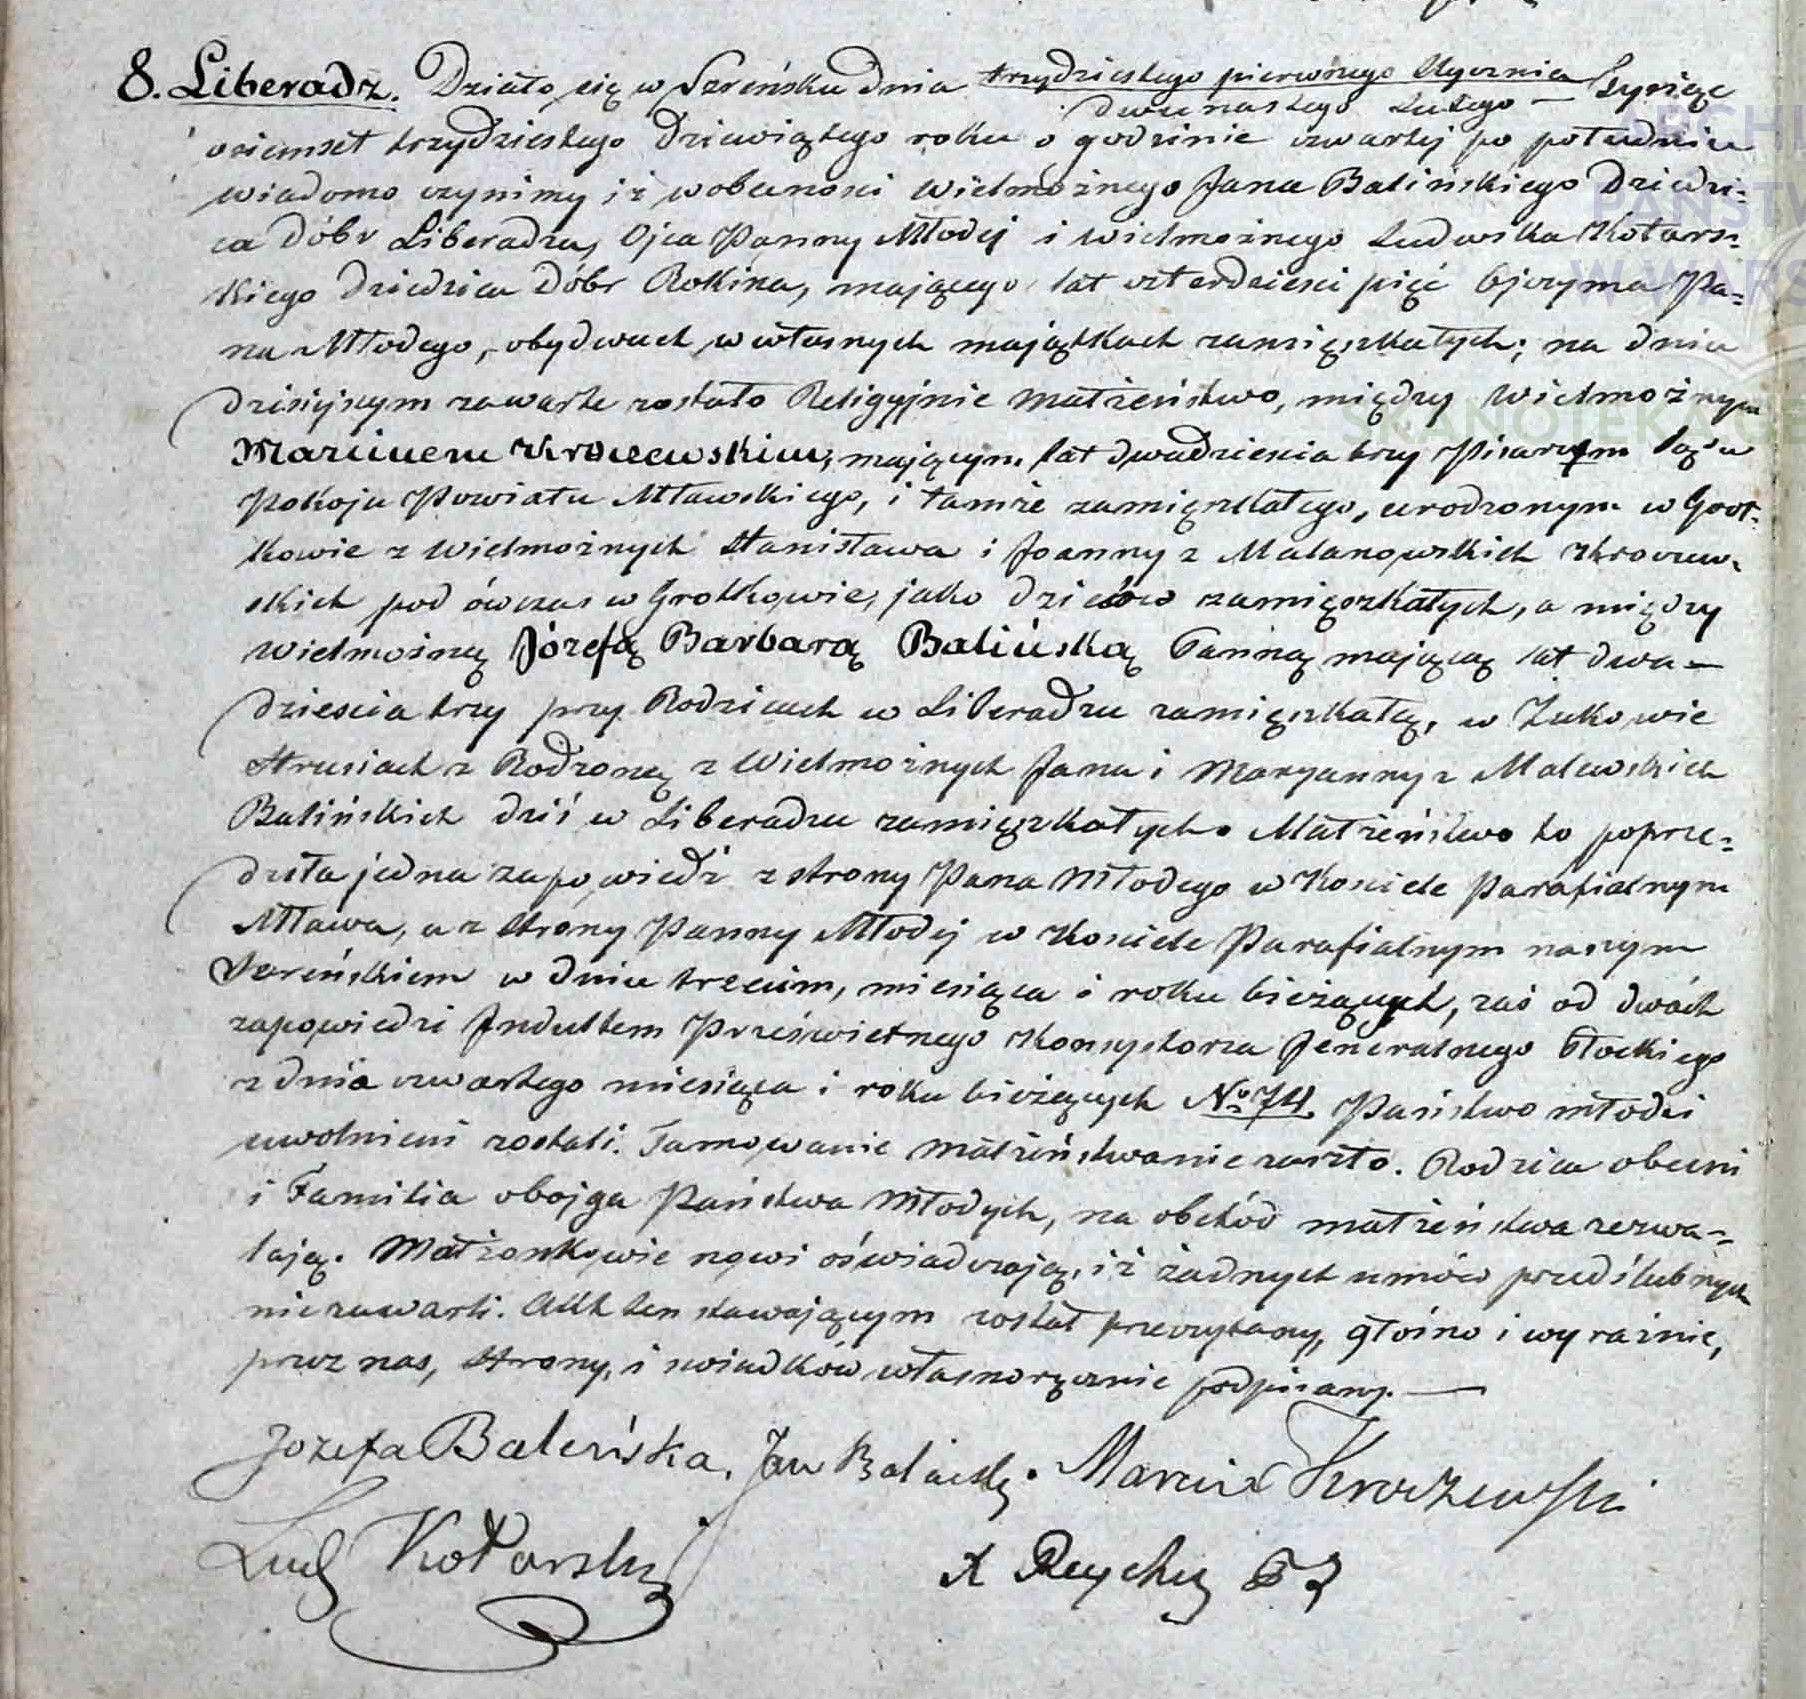 8. Liberadz. Działo się w Szreńsku dnia trzydziestego pierwszego Stycznia Tysiąc
dwunastego Lutego —
osiemset trzydziestego dziewiątego roku o godzinie czwartej po południu
wiadomo czynimy iż w obecności Wielmożnego Jana Balińskiego Dziedzi-
ca dóbr Liberadza, Ojca Panny Młodej i Wielmożnego Ludwika Kotars-
kiego dziedzica Dóbr Rokina, mającego lat czterdzieści pięć Ojczyma Pa-
na Młodego, obydwuch w własnych majątkach zamięszkałych; na dniu
dzisiejszym zawarte zostało Religyjnie małżeństwo, między Wielmożnym
Marcinem Kroczewskim, mającym lat dwadzieścia trzy Pisarzem Sądu
Pokoju Powiatu Mławskiego, i tamże zamięszkałego, urodzonym w Grot-
kowie z Wielmożnych Stanisława i Joanny z Malanowskich Kroczew-
skich pod ówczas w Grotkowie, jako dziedziców zamięszkałych, a między
Wielmożną Józefą Barbarą Balińską Panną mającą lat dwa—
dzieścia trzy przy Rodzicach w Liberadzu zamięszkałą, w Żukowie
Strusiach z Rodzoną z Wielmożnych Jana i Maryanny z Malewskich
Balińskich dziś w Liberadzu zamięszkałych. Małżeństwo to poprze-
dziła jedna zapowiedź z strony Pana Młodego w Kościele Parafialnym
Mława, a z strony Panny Młodej w Kościele Parafialnym naszym
Szreńskiem w dniu trzecim, miesiąca i roku bieżących, zaś od dwóch
zapowiedzi Indultem Prześwietnego Konsystorza Jeneralnego Płockiego
z dnia czwartego miesiąca i roku bieżących No 74 Państwo młodzi
uwolnieni zostali. Tamowanie małżeństwa nie zaszło. Rodzice obecni
i Familia obojga Państwa Młodych, na obchód małżeństwa zezwa-
lają. Małżonkowie nowi oświadczają, iż żadnych umów przedślubnych
nie zawarli. Akt ten stawającym został przeczytany, głośno i wyraźnie,
przez nas, strony, i świadków własnoręcznie podpisany. —
Jozefa Baleńska. Jan Baliński. Marcin Kroczewski
Lud Kotarski
X Reychy